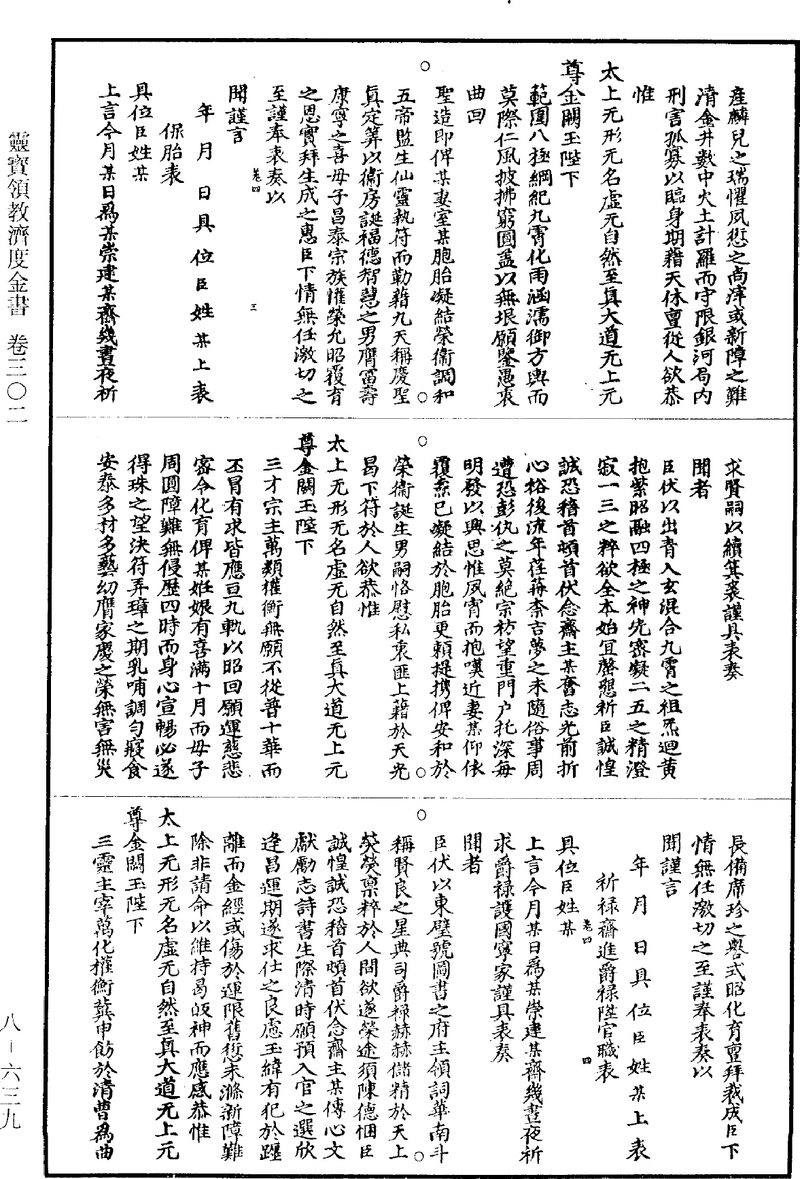 靈寶領教濟度金書　卷三〇二
產麟兒之瑞懼夙愆之尚滓或新障之難
清金井數中火土計羅而守限銀河局內
刑害孤寡以臨身期藉天休亶從人欲恭
惟
太上无形无名虛无自然至真大道无上元
尊金闕玉陛下
範圍八極綱紀九霄化雨涵濡御方輿而
莫際仁風披拂窮圓蓋以無垠願鑒愚衷
曲回
聖造即俾某妻室某胞胎凝結榮衞調和
五帝監生仙靈執符而勒籍九天稱慶聖
真定筭以衞房誕福德智慧之男膺富壽
康寧之喜母子昌泰宗族懽榮允昭覆育
之恩實拜生成之惠臣下情無任激切之
至謹奉表奏以
聞謹言
卷四　三
年　月　日具　位　臣　姓　某　上　表
保胎表
具位臣姓某
上言今月某日爲某崇建某齋幾晝夜祈
求賢嗣以續箕裘謹具表奏
聞者
臣伏以出青入玄混合九霄之祖炁迴黃
抱紫昭融四極之神先密凝二五之精澄
寂一三之粹欲全本始宜罄懇祈臣誠惶
誠恐稽首頓首伏念齋主某奮志光前折
心裕後流年荏苒柰吉夢之未隨俗事周
遭恐彭仇之莫絕宗祊望重門户托深每
明發以興思惟夙宵而抱嘆近妻某仰依
覆燾已凝結於胞胎更賴提携俾安和於
榮衞誕生男嗣恪慰私衷匪上籍於天光
曷下符於人欲恭惟
太上无形无名虛无自然至真大道无上元
尊金闕玉陛下
三才宗主萬類權衡無願不從普十華而
丕冒有求皆應亘九軌以昭回願運慈悲
密令化育俾某姙娠有喜滿十月而母子
周圓障難無侵歷四時而身心宣暢必遂
得珠之望決符弄璋之期乳哺調勻寢食
安泰多材多藝幼膺家慶之榮無害無災
長備席珍之譽式昭化育亶拜裁成臣下
情無任激切之至謹奉表奏以
聞謹言
年　月　日具　位　臣　姓　某　上　表
祈祿齋進爵祿陞官職表
卷四　四
具位臣姓某
上言今月某日爲某崇建某齋幾晝夜祈
求爵祿護國寧家謹具表奏
聞者
臣伏以東璧號圖書之府主領詞華南斗
稱賢良之星典司爵祿赫赫儲精於天上
熒熒禀粹於人間欲遂榮途須陳德悃臣
誠惶誠恐稽首頓首伏念齋主某傳心文
獻勵志詩書生際清時願預入官之選欣
逢昌運期遂求仕之良慮玉緯有犯於躔
離而金經或傷於運限舊愆未滌新障難
除非請命以維持曷皈神而應感恭惟
太上无形无名虛无自然至真大道无上元
尊金闕玉陛下
三靈主宰萬化權衡冀申飭於清曹爲曲
八－六三九